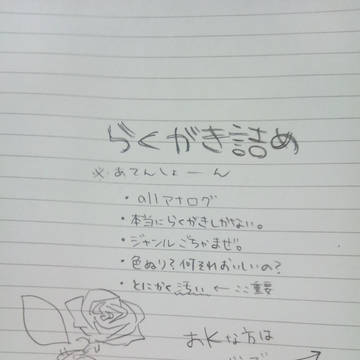 らくがき詰め
※あてんしょーん
・allアナログ
・本当にらくがきしかない。
・ジャンルごちゃまぜ。
・色ぬり?何それおいしいの?
・とにかく汚い ← ここ重要
おkな方は